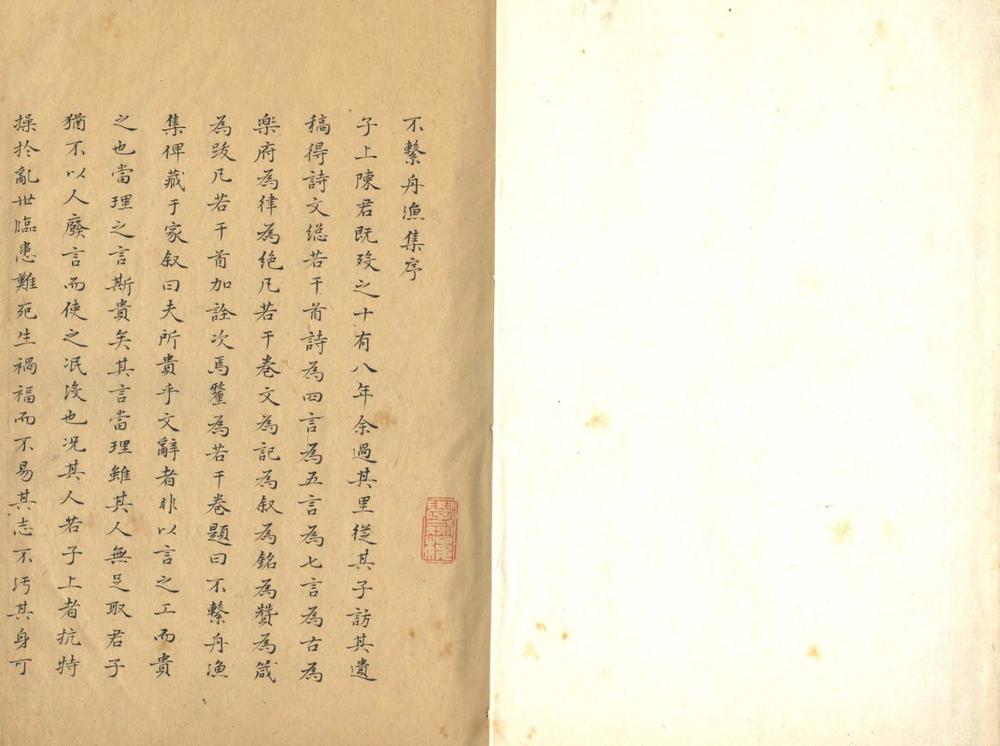 不繫舟漁集序
子上陳君既歿之十有八年余過其里從其子訪其遺
稿得詩文総若干首詩為四言為五言為七言為古為
樂府為律為絶凡若干卷文為記為叙為銘為贊為箴
為跋凡若干首加詮次焉釐為若干卷題曰不繫舟漁
集俾藏于家叙曰夫所貴乎文辭者非以言之工而貴
之也當理之言斯貴矣其言當理雖其人無足取君子
猶不以人廢言而使之泯沒也况其人若子上者抗特
操扵亂世臨患難死生禍福而不易其志不汚其身可